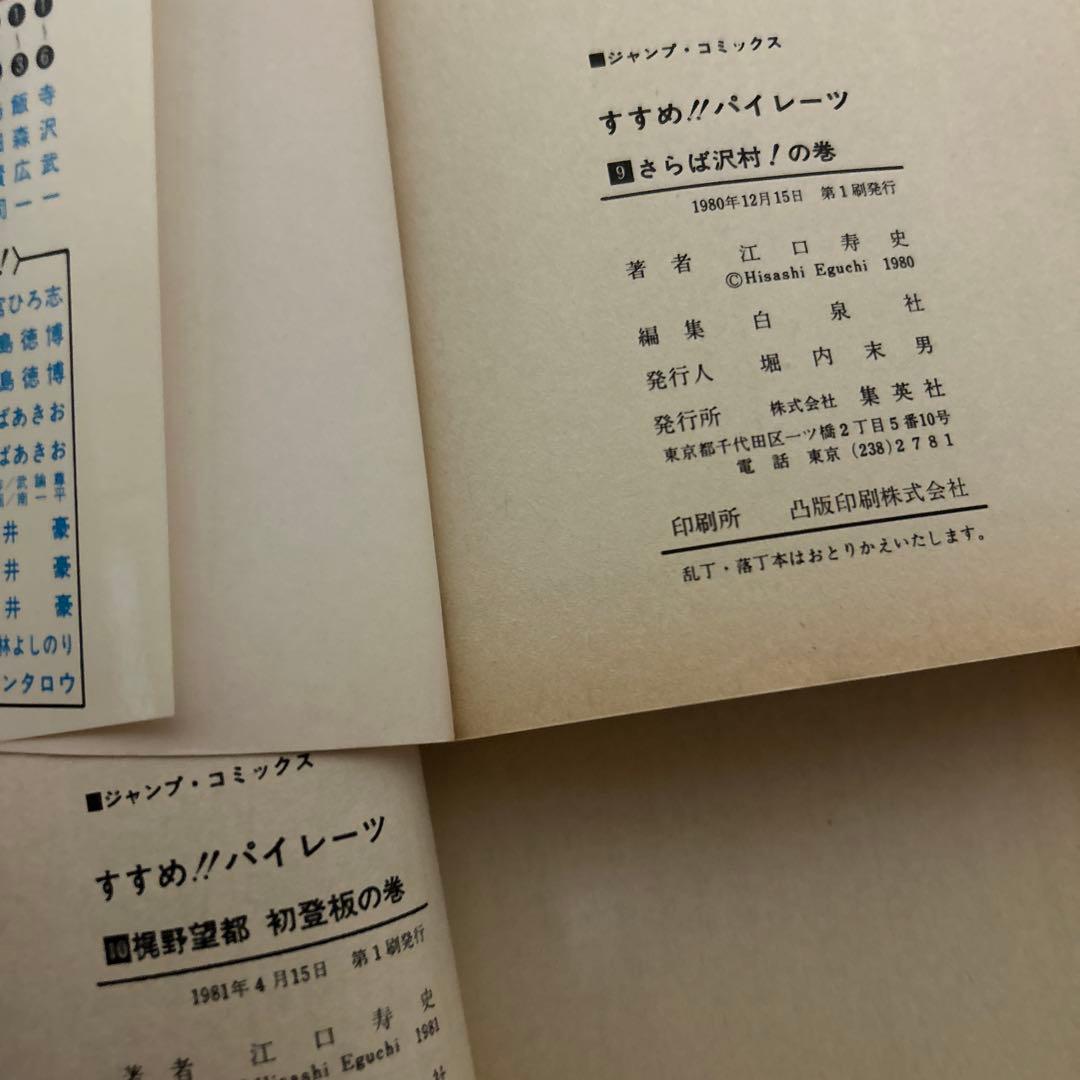 ■ジャンプ・コミックス
すすめ!!パイレーツ
9さらば沢村！の巻
1980年12月15日　第1刷発行
著者　江口寿史
©Hisashi Eguchi 1980
編集　白泉社
発行人　堀内末男
発行所　株式会社 集英社
東京都千代田区一ツ橋2丁目5番10号
電話　東京 (238) 2781
印刷所　凸版印刷株式会社
乱丁・落丁本はおとりかえいたします。
■ジャンプ・コミックス
すすめ!!パイレーツ
10梶野望都 初登板の巻
1981年4月15日　第1刷発行
著者　江口寿史
Eguchi 1981
寺沢武一
飯森広一
ひろ志
島徳博
島徳博
ばあきお
ばあきお
武論尊
南一平
井豪
井豪
井豪
林よしのり
ンタロウ